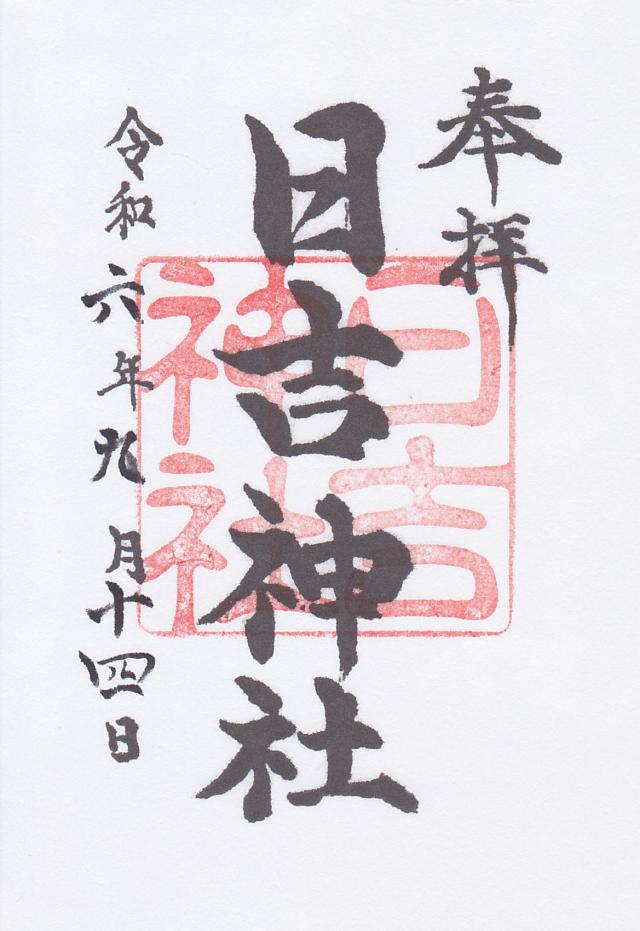 奉拝
日吉神社
日吉神社
令和六年九月十四日